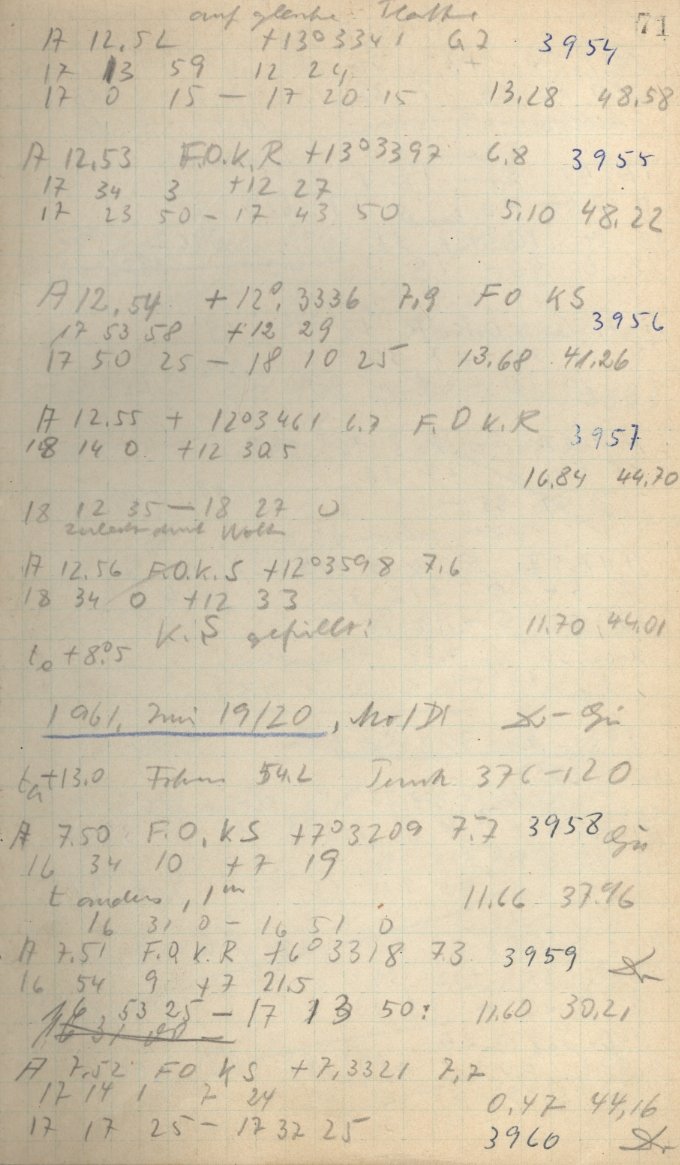 auf gleiche Platte
71
A 12.52 +13°3341 6.7 3954
17 13 59 12 24
17 0 15 — 17 20 15 13.28 48.58
A 12.53 F.O.K.R +13°3397 6.8 3955
17 34 3 +12 27
17 23 50 — 17 43 50 5.10 48.22
A 12.54 +12°.3336 7.9 FO KS
3956
17 53 58 +12 29
17 50 25 — 18 10 25 13.68 41.26
A 12.55 + 12°3461 6.7 F.O K.R
3957
18 14 0 +12 30.5
16.84 44.70
18 12 35 — 18 27 0
A 12.56 F.O.K.S +12°3598 7.6
18 34 0 +12 33
K.S 11.70 44.01
+8.5
1961, Juni 19/20, Mo/Di
+13.0 Fokus 54.2 376-120
A 7.50 F.O.KS +7°3209 7.7 3958
16 34 10 +7 19
t anders, 1m 11.66 37.96
16 31 0 — 16 51 0
A 7.51 F.O.K.R +6°3318 7.3 3959
16 54 9 +7 21.5
16 53 25 — 17 13 50: 11.60 30.21
A 7.52 FO KS +7.3321 7.7
17 14 1 7 24
0.47 44.16
17 17 25 — 17 37 25
3960